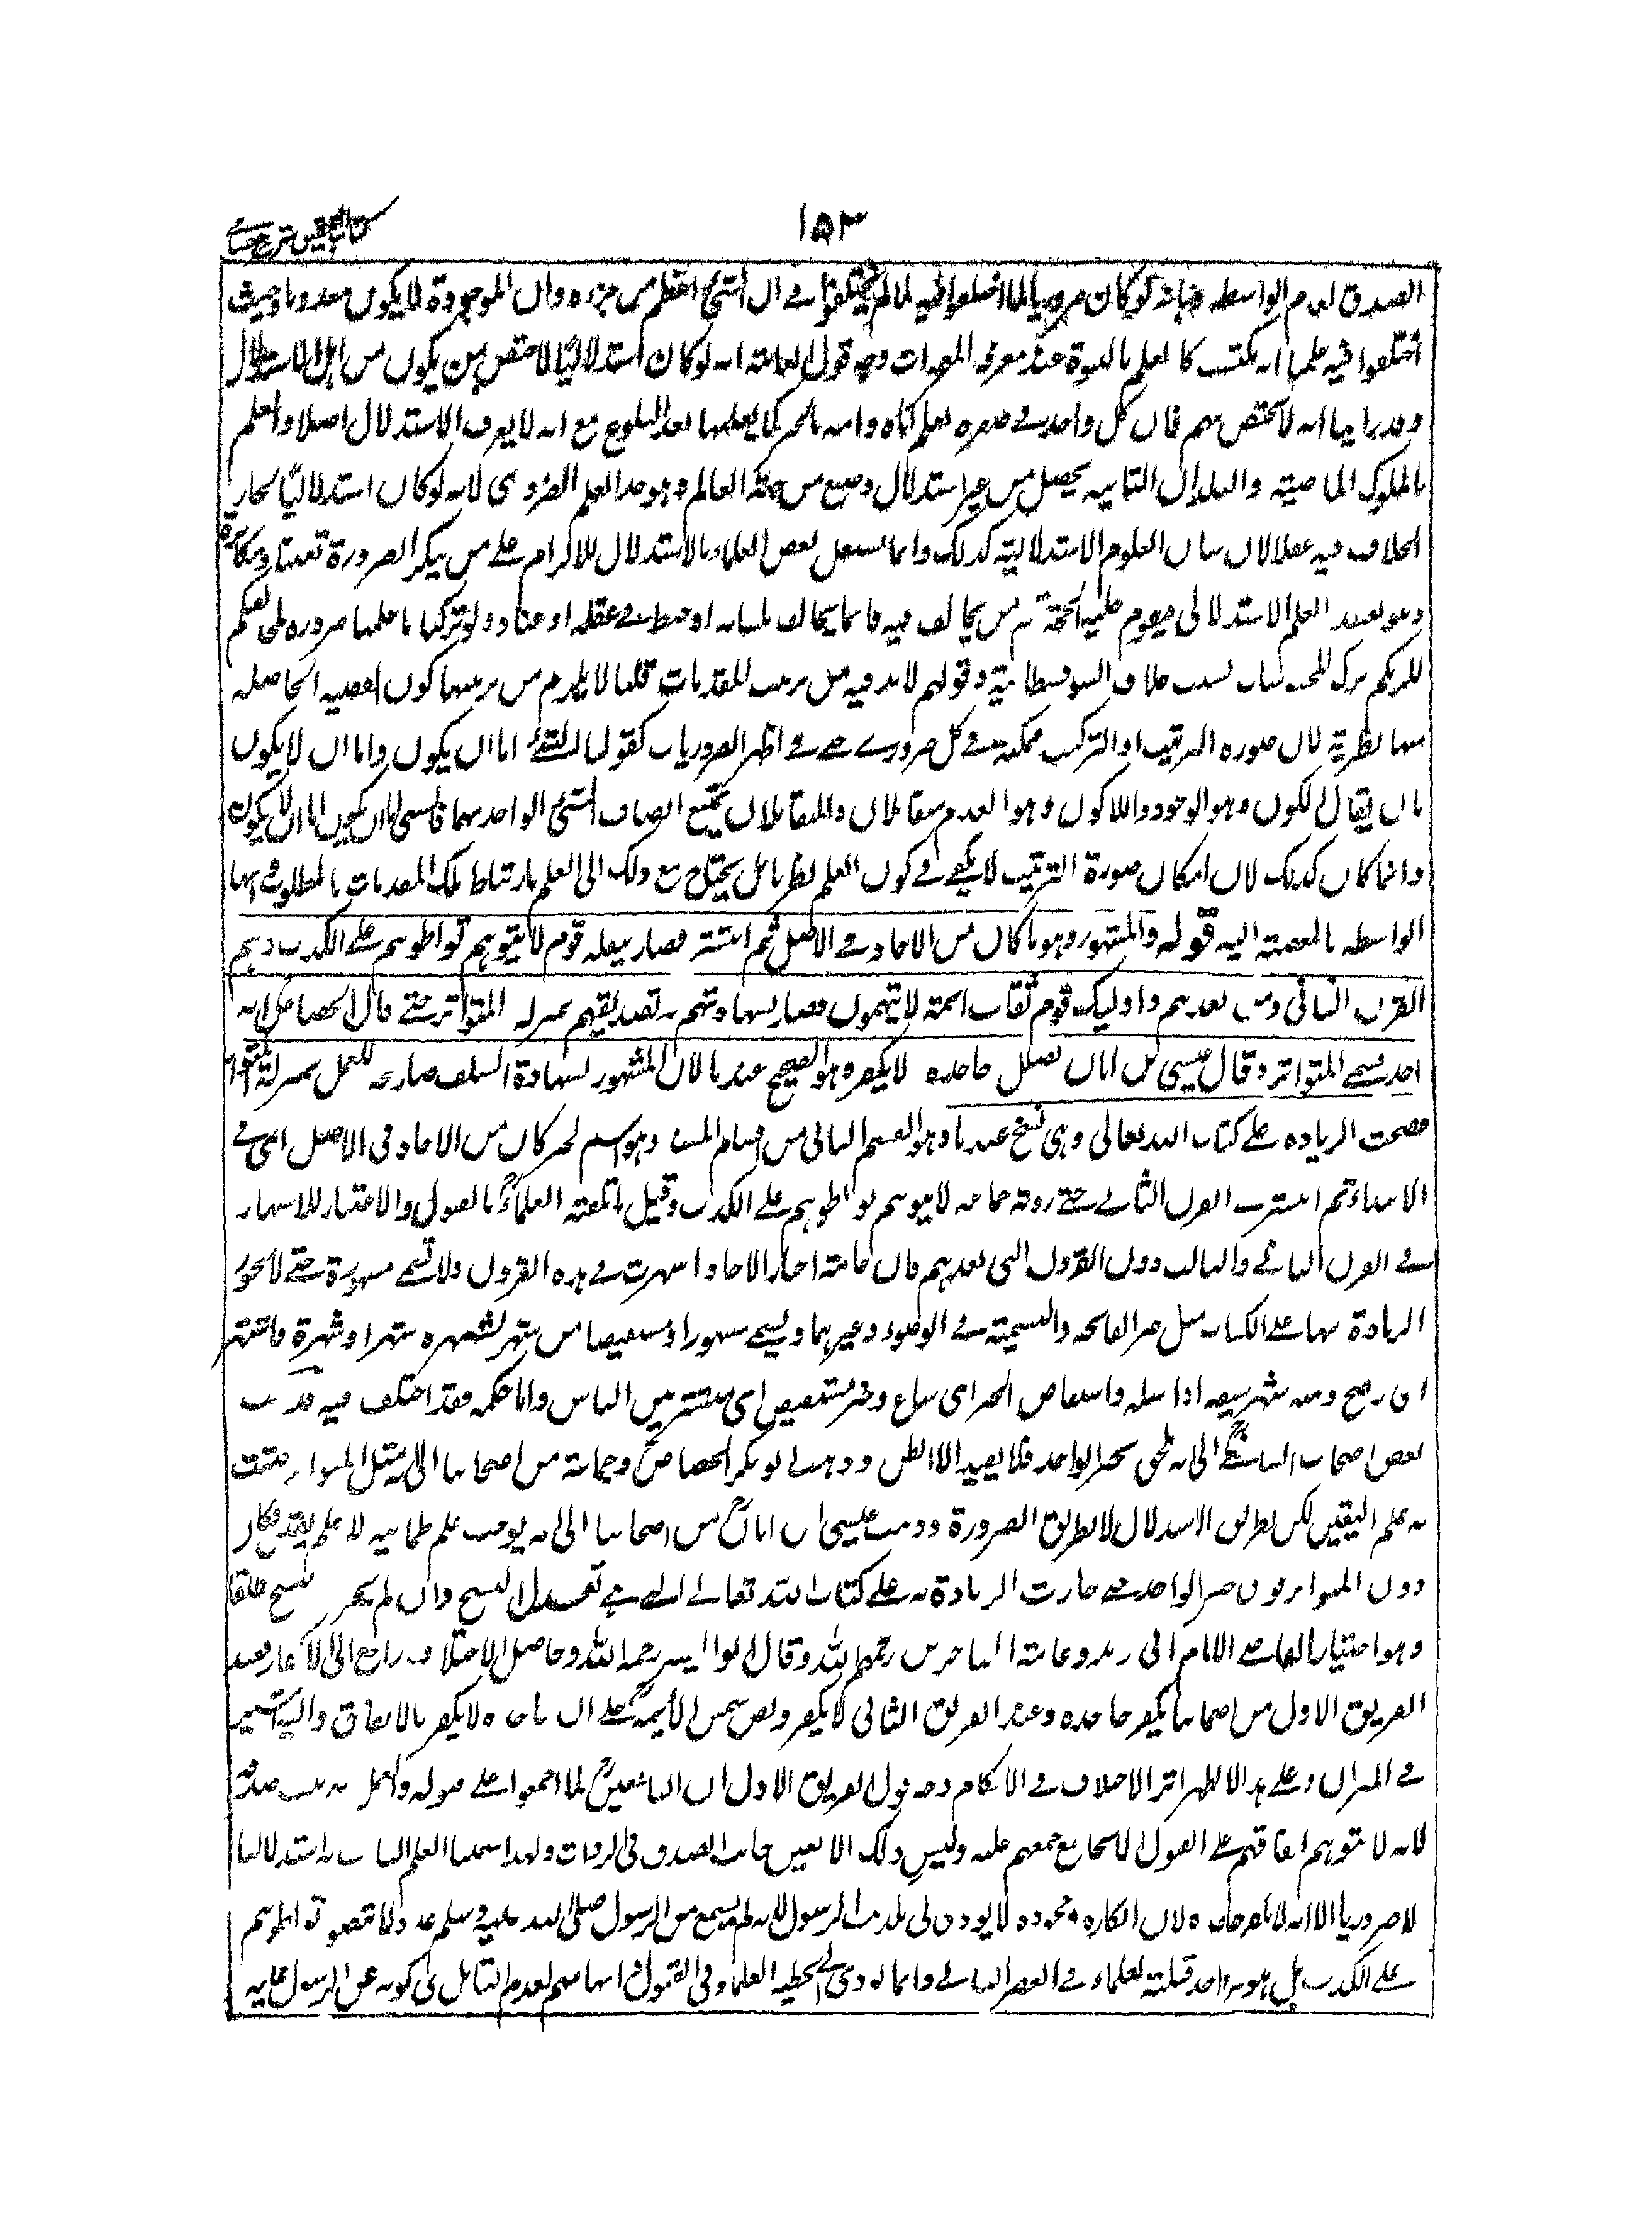 ١٥٣
كتاب التحقيق شرح حسامي
الصدق لعدم الواسطة وبانه لو كان ضروريا لما اختلفوا فيه كما لم يختلفوا في ان الشئ اعظم من جزءه وان الموجود لا يكون معدوما وحيث
اختلفوا فيه علمنا انه مكتسب كالعلم بالنبوة عند معرفة المعجزات وجه قول العامة انه لو كان استدلاليًا لاختص بمن يكون من اهل الاستدلال
وقد راينا انه لا يختص بهم فان كل واحد في صغره يعلم اباه وامه بالخبر كما يعلمها بعد البلوغ مع انه لا يعرف الاستدلال اصلا والعلم
بالملوك الماضية والبلدان النائية يحصل من غير استدلال وصنع من جهة العالم وهو حد العلم الضروري لانه لو كان استدلاليًا لجاز
الخلاف فيه عقلا لان شان العلوم الاستدلالية كذلك وانما يستعمل بعض العلماء بالاستدلال للالزام على من ينكر الضرورة تعنتا ومكابرة
وهو يعتقد العلم الاستدلالي فيقوم عليه الحجة ثم من يخالف فيه فانما يخالف بلسانه او خبط في عقله او عناد ولو تركنا ما علمنا ضرورة لمخالفتكم
للزمكم ترك المحسوسات بسبب خلاف السوفسطائية وقولهم لابد فيه من ترتيب المقدمات قلنا لا يلزم من ترتيبها كون القضية الحاصلة
منها نظرية لان صورة الترتيب او التركيب ممكنة في كل ضروري حتى في اظهر الضروريات كقولنا الشئ اما ان يكون واما ان لا يكون
بان يقال الكون وهو الوجود واللاكون وهو العدم متقابلان والمتقابلان يمتنع اتصاف الشئ الواحد بهما فالشئ اما ان يكون اما ان لا يكون
وانما كان كذلك لان امكان صورة الترتيب لا يكفي في كون العلم نظريا بل يحتاج مع ذلك الى العلم بارتباط تلك المقدمات بالمطلوب وانها
الواسطة المفضية اليه قوله والمشهور وهو ما كان من الاحاد في الاصل ثم انتشر فصار ينقله قوم لا يتوهم تواطوهم على الكذب وهم
القرن الثاني ومن بعدهم واوليك قوم ثقات ائمة لا يتهمون فصار بشهادتهم وتصديقهم بمنزلة المتواتر حتى قال الجصاص انه
احد قسمي المتواتر وقال عيسى بن ابان يضلل جاحده ولا يكفر وهو الصحيح عندنا لان المشهور بشهادة السلف صار حجة للعمل بمنزلة المتواتر
فصحت الزيادة على كتاب الله تعالى وهي نسخ عندنا وهو القسم الثاني من اقسام السنة وهو اسم لخبر كان من الاحاد في الاصل اي في
الابتداء ثم انتشر في القرن الثاني حتى روته جماعة لا يتوهم تواطوهم على الكذب وقيل ما تلقته العلماء بالقبول والاعتبار للاشتهار
في القرن الثاني والثالث دون القرون التي بعدهم فان عامة اخبار الاحاد اشتهرت في هذه القرون ولا تسمى مشهورة حتى لا يجوز
الزيادة بها على الكتاب مثل خبر الفاتحة والتسمية في الوضوء وغيرهما ويسمى مشهورا ومستفيضا من شهر يشهر شهرا وشهرة فاشتهر
اي وضح ومنه شهر سيفه اذا سله واستفاض الخبر اي شاع وخبر مستفيض اي منتشر بين الناس واما حكمه فقد اختلف فيه فذهب
بعض اصحاب الشافعي الى انه ملحق بخبر الواحد فلا يفيد الا الظن وذهب ابو بكر الجصاص وجماعة من اصحابنا الى انه مثل المتواتر فيثبت
به علم اليقين لكن بطريق الاستدلال لا بطريق الضرورة وذهب عيسى ابن ابان من اصحابنا الى انه يوجب علم طمانينة لا علم يقين فكان
دون المتواتر وفوق خبر الواحد حتى جازت الزيادة به على كتاب الله تعالى التي هي تعدل النسخ وان لم يجز النسخ مطلقا
وهو اختيار القاضي الامام ابي زيد وعامة المتاخرين رحمهم الله وقال ابو اليسر رحمه الله وحاصل الاختلاف راجع الى الاكفار فعند
الفريق الاول من اصحابنا يكفر جاحده وعند الفريق الثاني لا يكفر ونص شمس الايمة على ان جاحده لا يكفر بالاتفاق واليه اشير
في الميزان وعلى هذا لا يظهر اثر الاختلاف في الاحكام وجه قول الفريق الاول ان التابعين لما اجمعوا على قبوله والعمل به ثبت صدقه
لانه لا يتوهم اتفاقهم على القبول الا بجامع جمعهم عليه وليس ذلك الا تعين جانب الصدق في الرواة ولهذا سمينا العلم الثابت به استدلاليا
لا ضروريا الا انه لا يكفر جاحده لان انكاره وجحوده لا يودي الى تكذيب الرسول لانه لم يسمع من الرسول صلى الله عليه وسلم عدد لا يتصور تواطوهم
على الكذب بل هو خبر واحد قبلته العلماء في العصر الثاني وانما يودي الى تخطية العلماء في القبول واتهامهم بعدم التامل في كونه عن الرسول عليه